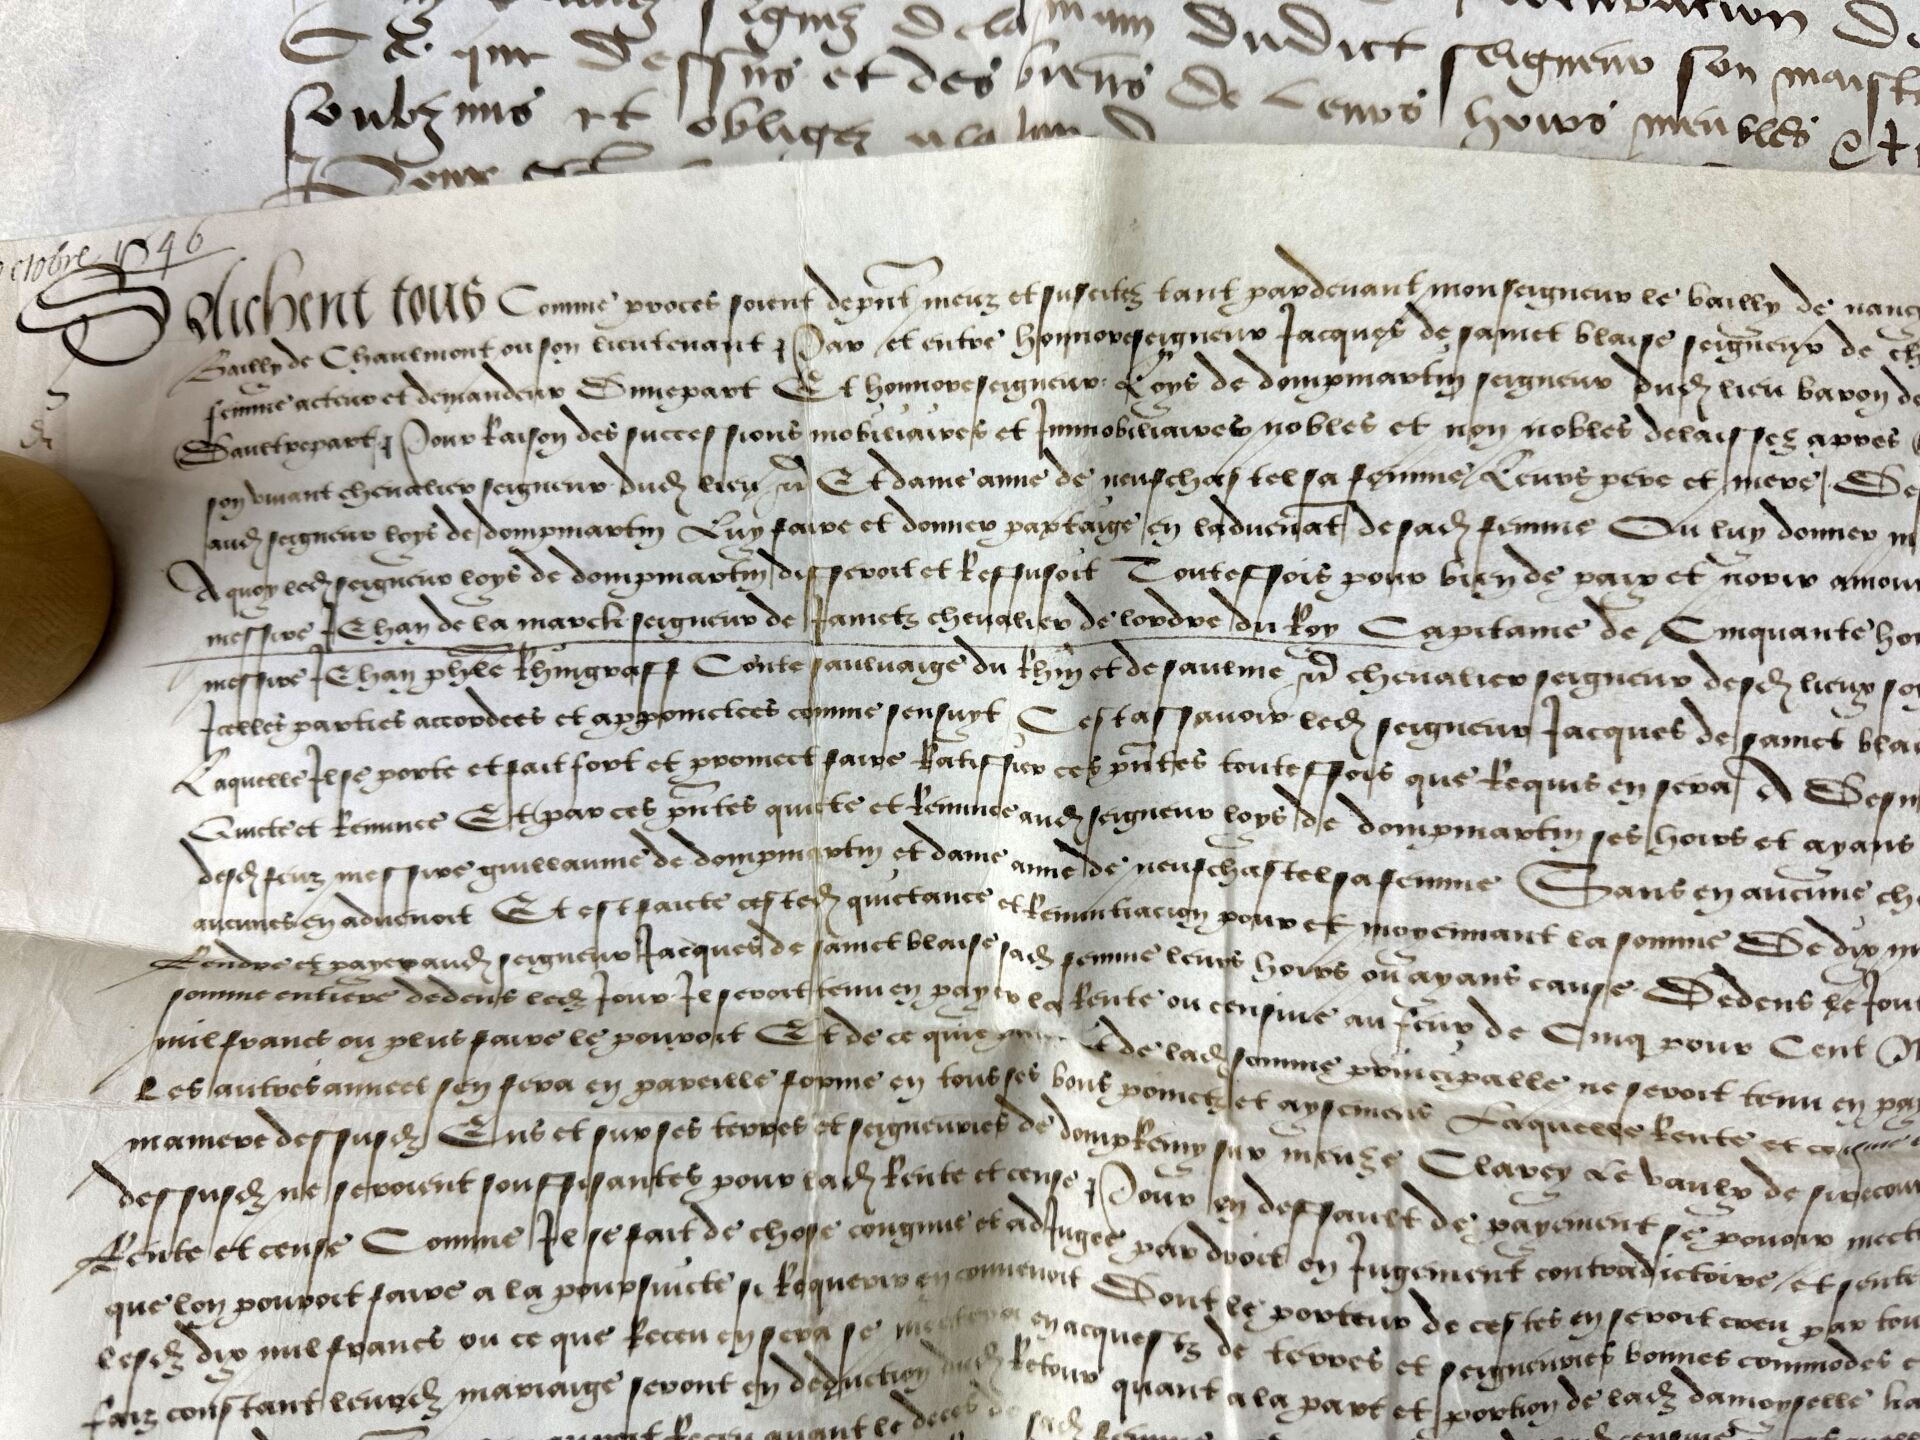 seigneur de la main dudict seigneur son maist
Et que dessus et des biens de leurs hoirs meubles et
soubzmis et obligez a la
octobre 1546
Saichent tous Comme proces soient de pnt meuz et suscitez tant pardevant monseigneur le bailly de nancy
Bailly de Chaulmont ou son lieutenant Par et entre honnore seigneur Jacques de sainct blaise seigneur de ch
femme acteur et demandeur Dunepart Et honnore seigneur Loys de dompmartin seigneur dud lieu baron de
Daultrepart Pour Raison des successions mobiliaires et Immobiliaires nobles et non nobles delaissez apres
son vivant chevalier seigneur dud lieu Et dame anne de neufchastel sa femme Leurs pere et mere De
aud seigneur loys de dompmartin Luy faire et donner partaige en ladvenat de sad femme Ou luy donner m
A quoy led seigneur loys de dompmartin differoit et Reffusoit Touteffois pour bien de paix et norir amour
messire Jehan de la marck seigneur de Jametz chevalier de lordre du Roy Capitaine de Cinquante ho
messire Jehan phle Rhingraff Conte sauluaige du Rhin et de saulme chevalier seigneur desd lieux so
Icelles parties accordees et appoinctees comme sensuyt Cestassavoir led seigneur Jacques de sainct blai
Laquelle Il se porte et fait fort et promect faire Ratiffier ces pntes touteffois que Requis en sera Desm
Quicte et Renunce Et par ces pntes quicte et Renunce aud seigneur loys de dompmartin ses hoirs et ayans
desd feuz messire guillaume de dompmartin et dame anne de neufchastel sa femme Sans en aucune ch
aucunes en advenoit Et est faicte cested quictance et Renuntiacion pour et moyennant la somme De dix m
Rendre et payer aud seigneur Jacques de sainct blaise sad femme leurs hoirs ou ayans cause Dedens le Jour
somme entiere dedens led Jour Il seroit tenu en payer la Rente ou censive au feur de Cinq pour Cent
mil francs ou plus faire le pouvoit Et de ce quil de lad somme principalle ne seroit tenu en pay
Les autres annees sen fera en pareille forme en tous ses bons poinctz et aysemens Laquelle Rente et
maniere dessusd Ens et sur ses terres et seigneuries de dompRemy sur meuze Clarey Le vaulx de mirecour
dessusd ne seroient souffisantes pour lad Rente et cense Pour en deffault de payement se pouoir mectr
Rente et cense Comme Il se fait de chose congnue et adJugee par droit en Jugement contradictoire et sente
que lon pouroit faire a la poursuicte si Requerir en convenoit Dont le porteur de cestes en seroit creu par tou
lesd dix mil francs ou ce que Receu en sera se en acquestz de terres et seigneuries bonnes commodes e
faiz constant leurd mariaige seront en deduction dud Retour quant a la part et portion de lad damoyselle
Receu avant le deces de sad